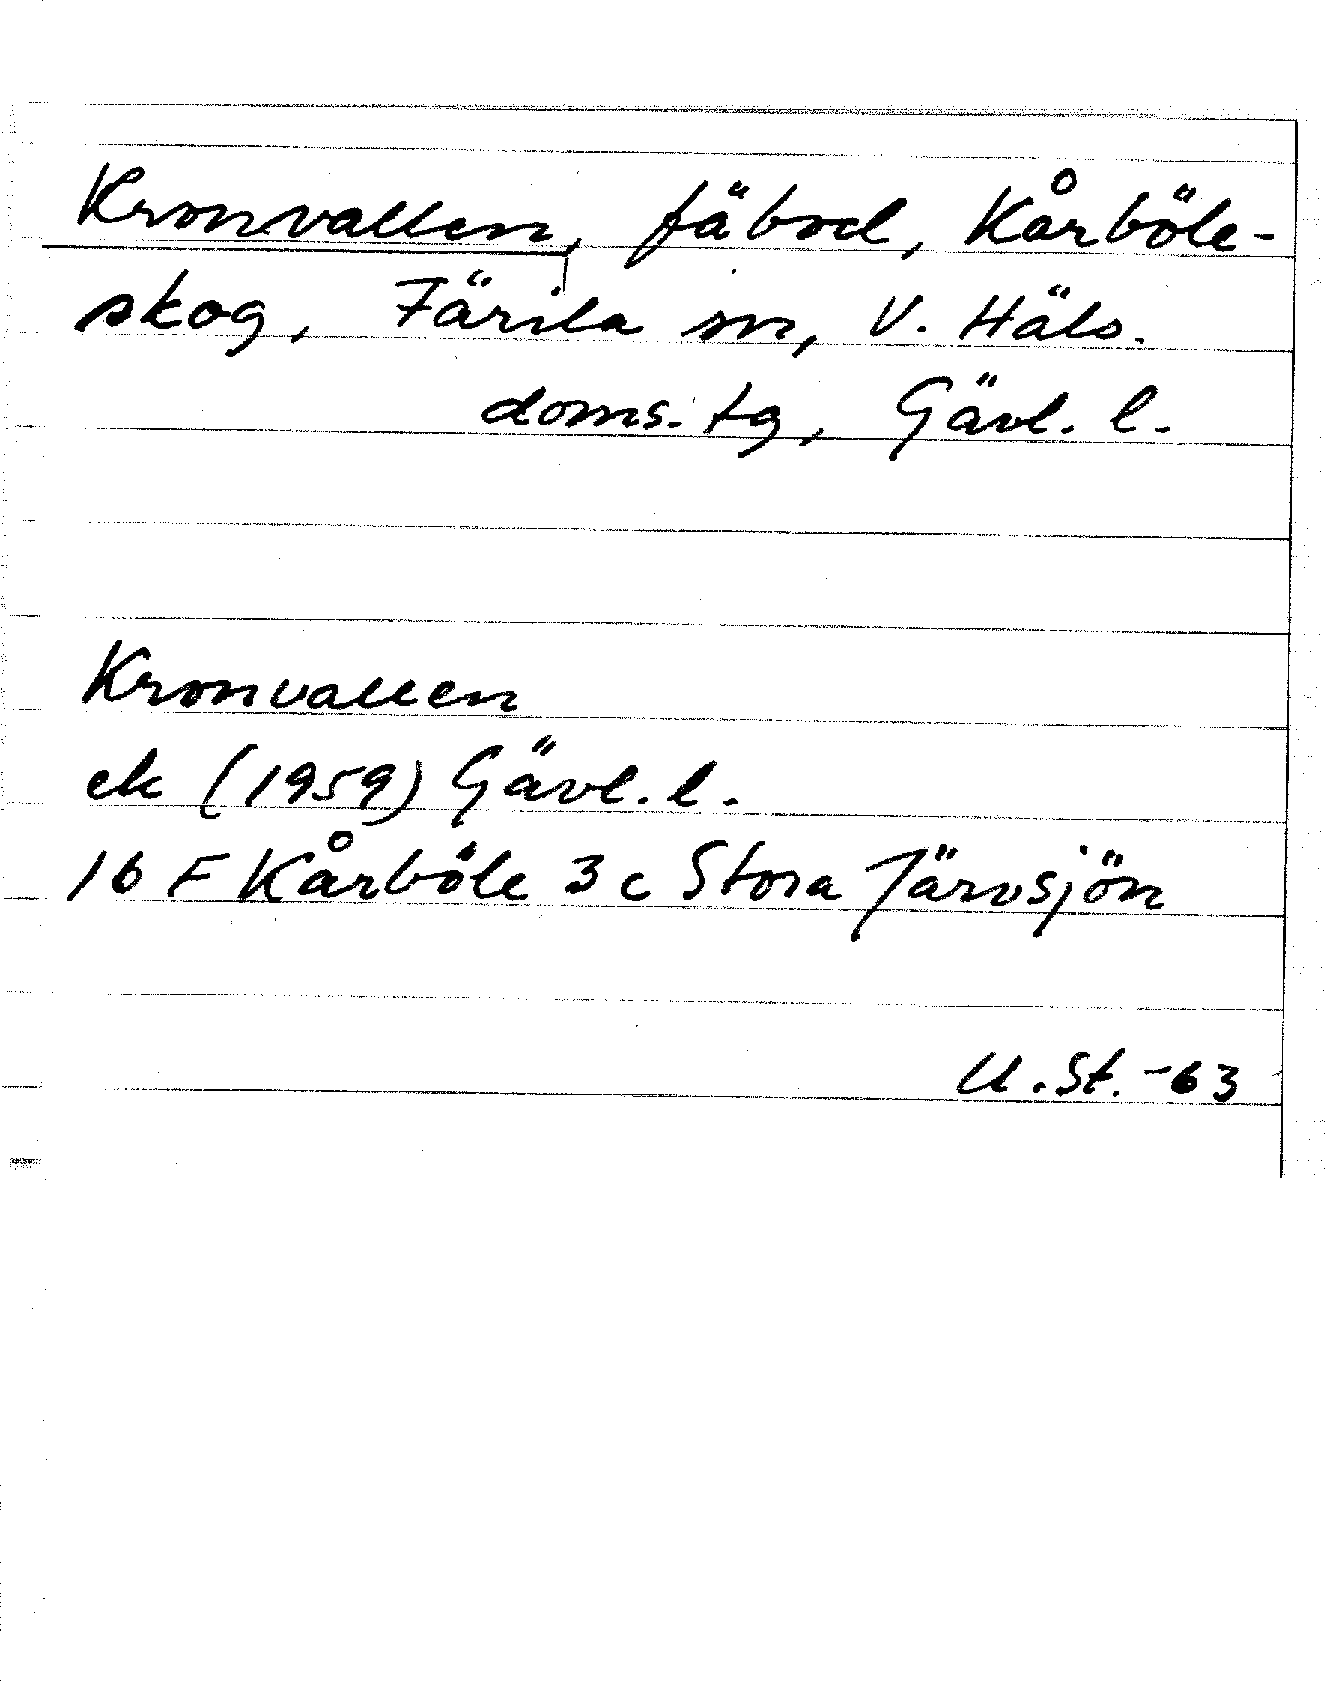 Kronvallen, fäbod, Kårböle-
skog, Färila sn, V. Häls.
doms. tg, Gävl. l.
Kronvallen
ek (1959) Gävl. l.
16 F Kårböle 3 c Stora Järvsjön
U. St. -63